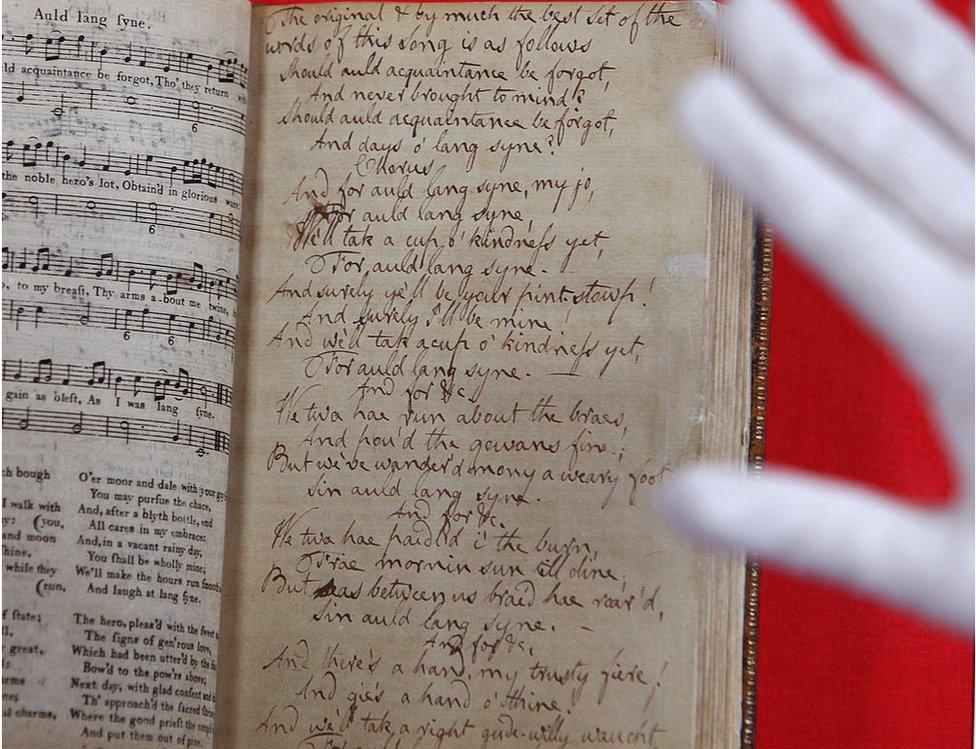 Auld lang ſyne.
ld acquaintance be forgot, Tho' they return
6
the noble hero's lot, Obtain'd in glorious wars
6
, to my breaſt, Thy arms a-bout me twine,
6 6
gain as bleſt, As I was lang ſyne.
ch bough
I walk with
y: (you,
and moon
ſhine,
while they
(run,
f ſtate;
ll,
great,
arms
nes;
al charms,
O'er moor and dale with your gay
You may purſue the chace,
And, after a blyth bottle, end
All cares in my embrace:
And, in a vacant rainy day,
You ſhall be wholly mine;
We'll make the hours run ſmooth
And laugh at lang ſyne.
The hero, pleas'd with the ſweet
The ſigns of gen'rous love,
Which had been utter'd by the
Bow'd to the pow'rs above;
Next day, with glad conſent and
Th' approach'd the sacred
Where the good prieſt the
And put them out of
The original & by much the best set of the
words of this song is as follows
Should auld acquaintance be forgot,
And never brought to mind?
Should auld acquaintance be forgot,
And days o' lang syne?
Chorus
And for auld lang syne, my jo,
For auld lang syne,
We'll tak a cup o' kindneſs yet,
For auld lang syne. -
And surely ye'll be your pint-stowp!
And surely I'll be mine!
And we'll tak a cup o' kindneſs yet,
For auld lang syne. —
And for &c.
We twa hae run about the braes,
And pou'd the gowans fine;
But we've wander'd mony a weary foot
Sin auld lang syne.
And for &c.
We twa hae paidl'd i' the burn,
Frae mornin sun till dine;
But seas between us braid hae roar'd,
Sin auld lang syne. -
And for &c.
And there's a hand, my trusty fiere!
And gie's a hand o' thine!
And we'll tak a right gude-willy waught
For